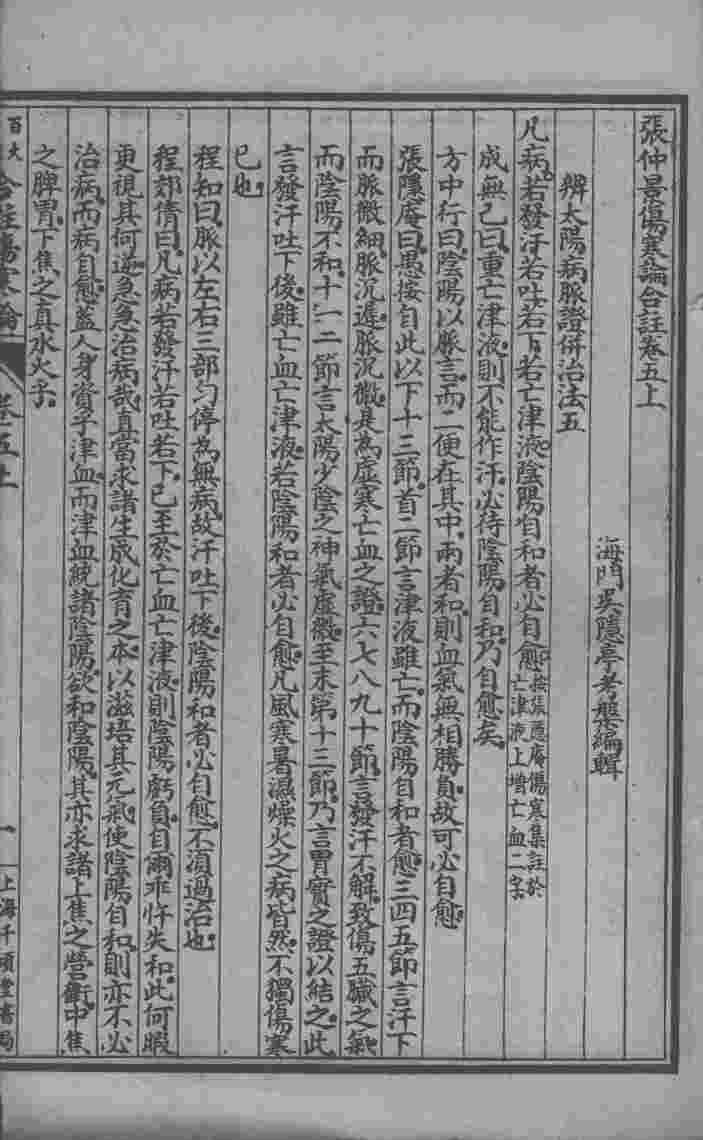 張仲景傷寒論合註卷五上
海門吳隱亭考槃編輯
辨太陽病脈證併治法五
凡病。若發汗若吐。若下。若亡津液。陰陽自和者必自愈。按張隱庵傷寒集註於亡津液上增亡血二字
成無己曰。重亡津液。則不能作汗。必待陰陽自和。乃自愈矣。
方中行曰。陰陽以脈言。而二便在其中。兩者和。則血氣無相勝負。故可必自愈。
張隱庵曰。愚按自此以下十三節。首二節言津液雖亡。而陰陽自和者愈。三四五節言汗下
而脈微細。脈沉遲。脈沉微。是為虛寒亡血之證。六七八九十節。言發汗不解。致傷五臟之氣。
而陰陽不和。十一二節言太陽少陰之神氣虛微。至末第十三節。乃言胃實之證以結之。此
言發汗吐下後。雖亡血亡津液。若陰陽和者必自愈。凡風寒暑濕燥火之病皆然。不獨傷寒
已也。
程知曰。脈以左右三部勻停為無病。故汗吐下後。陰陽和者必自愈。不須過治也。
程郊倩曰。凡病若發汗若吐若下。已至於亡血亡津液。則陰陽虧負。自爾乖忤失和。此何暇
更視其何逆。急急治病哉。直當求諸生成化育之本。以滋培其元氣。使陰陽自和。則亦不必
治病。而病自愈。蓋人身資乎津血。而津血統諸陰陽。欲和陰陽。其亦求諸上焦之營衛。中焦
之脾胃。下焦之真水火乎。
百大合註傷寒論
卷五上
一
上海千頃堂書局